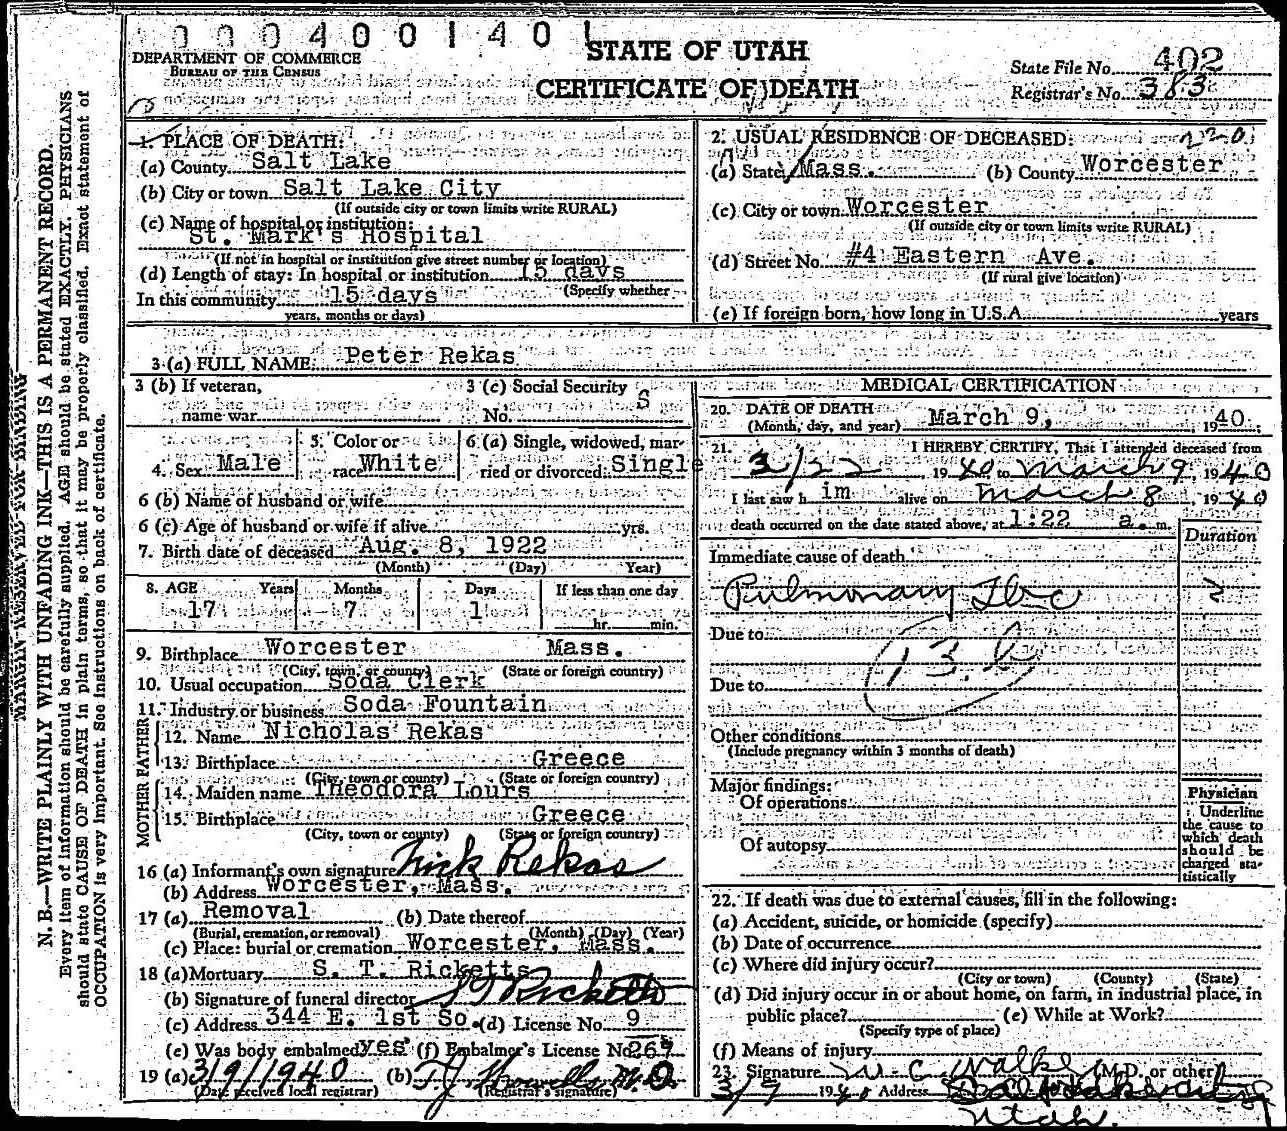 0 0 0 4 0 0 1 4 0 1
STATE OF UTAH
CERTIFICATE OF DEATH
DEPARTMENT OF COMMERCE
BUREAU OF THE CENSUS
State File No. 402
Registrar's No. 383
N. B.—WRITE PLAINLY WITH UNFADING INK—THIS IS A PERMANENT RECORD.
Every item of information should be carefully supplied. AGE should be stated EXACTLY. PHYSICIANS
should state CAUSE OF DEATH in plain terms, so that it may be properly classified. Exact statement of
OCCUPATION is very important. See instructions on back of certificate.
MARGIN RESERVED FOR BINDING
1. PLACE OF DEATH:
(a) County Salt Lake
(b) City or town Salt Lake City
(If outside city or town limits write RURAL)
(c) Name of hospital or institution:
St. Mark's Hospital
(If not in hospital or institution give street number or location)
(d) Length of stay: In hospital or institution 15 days
(Specify whether
In this community 15 days
years, months or days)
2. USUAL RESIDENCE OF DECEASED: 220
(a) State Mass. (b) County Worcester
(c) City or town Worcester
(If outside city or town limits write RURAL)
(d) Street No. #4 Eastern Ave.
(If rural give location)
(e) If foreign born, how long in U.S.A. years
3 (a) FULL NAME: Peter Rekas
3 (b) If veteran,
name war
3 (c) Social Security
No. S
4. Sex Male
5. Color or
race White
6 (a) Single, widowed, mar-
ried or divorced: Single
6 (b) Name of husband or wife
6 (c) Age of husband or wife if alive yrs.
7. Birth date of deceased Aug. 8, 1922
(Month) (Day) Year)
8. AGE Years Months Days If less than one day
17 7 1 hr. min.
9. Birthplace Worcester Mass.
(City, town, or county) (State or foreign country)
10. Usual occupation Soda Clerk
11. Industry or business Soda Fountain
FATHER
12. Name Nicholas Rekas
13. Birthplace Greece
(City, town or county) (State or foreign country)
MOTHER
14. Maiden name Theodora Tours
15. Birthplace Greece
(City, town or county) (State or foreign country)
16 (a) Informant's own signature Nick Rekas
(b) Address Worcester, Mass.
17 (a) Removal (b) Date thereof
(Burial, cremation, or removal) (Month) (Day) (Year)
(c) Place: burial or cremation Worcester, Mass.
18 (a) Mortuary S. T. Ricketts
(b) Signature of funeral director S T Ricketts
(c) Address 344 E. 1st So. (d) License No. 9
(e) Was body embalmed yes (f) Embalmer's License No. 267
19 (a) 3/9/1940 (b) T J Howells M.D.
(Date received local registrar) (Registrar's signature)
MEDICAL CERTIFICATION
20. DATE OF DEATH
(Month, day, and year) March 9, 1940.
21. I HEREBY CERTIFY, That I attended deceased from
3/22, 1940 to March 9, 1940
I last saw him alive on March 8, 1940
death occurred on the date stated above, at 1:22 a. m.
Duration
Immediate cause of death
Pulmonary Tbc
Due to
13.b
Due to
Other conditions
(Include pregnancy within 3 months of death)
Major findings:
Of operations
Of autopsy
Physician
Underline
the cause to
which death
should be
charged sta-
tistically
22. If death was due to external causes, fill in the following:
(a) Accident, suicide, or homicide (specify)
(b) Date of occurrence
(c) Where did injury occur?
(City or town) (County) (State)
(d) Did injury occur in or about home, on farm, in industrial place, in
public place? (e) While at Work?
(Specify type of place)
(f) Means of injury
23. Signature W. C. Walker (M.D. or other)
3/9 1940 Address Salt Lake City
Utah.